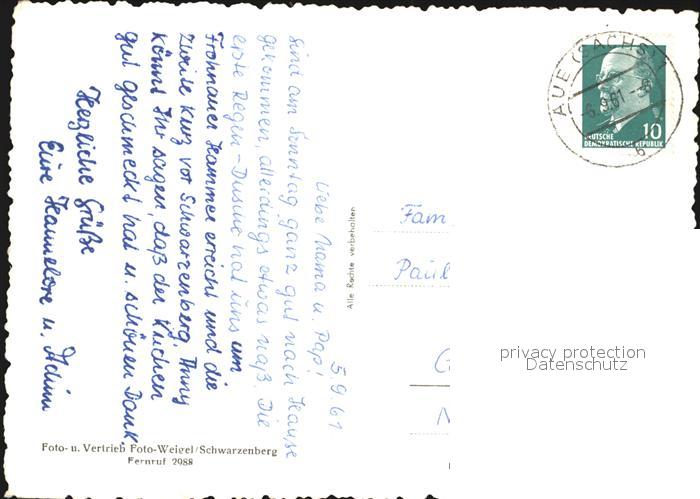 5.9.61
Liebe Mama u. Papi!
Sind am Sonntag ganz gut nach Hause
gekommen, allerdings etwas naß. Die
erste Regen-Dusche hat uns um
Frohnauer Hammer erreicht und die
zweite kurz vor Schwarzenberg.
könnt Ihr sagen, daß der Kuchen
gut geschmeckt hat u. schönen Dank.
Herzliche Grüße
Eure Hannelore u. Achim
Foto- u. Vertrieb Foto-Weigel/Schwarzenberg
Fernruf 2988
Alle Rechte verbehalten
Fam
Paul
AUE (SACHS)
6.9.61
10
DEUTSCHE
DEMOKRATISCHE REPUBLIK
privacy protection
Datenschutz